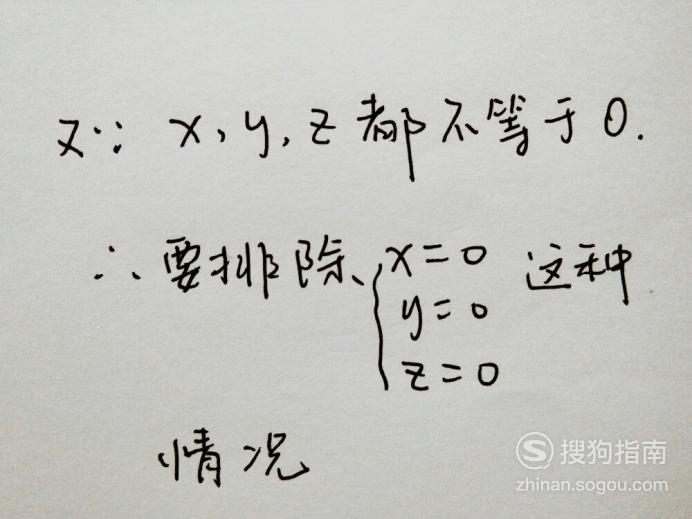 又∵ x, y, z都不等于0.
∴要排除{x=0 这种
y=0
z=0
情况
搜狗指南
zhinan.sogou.com